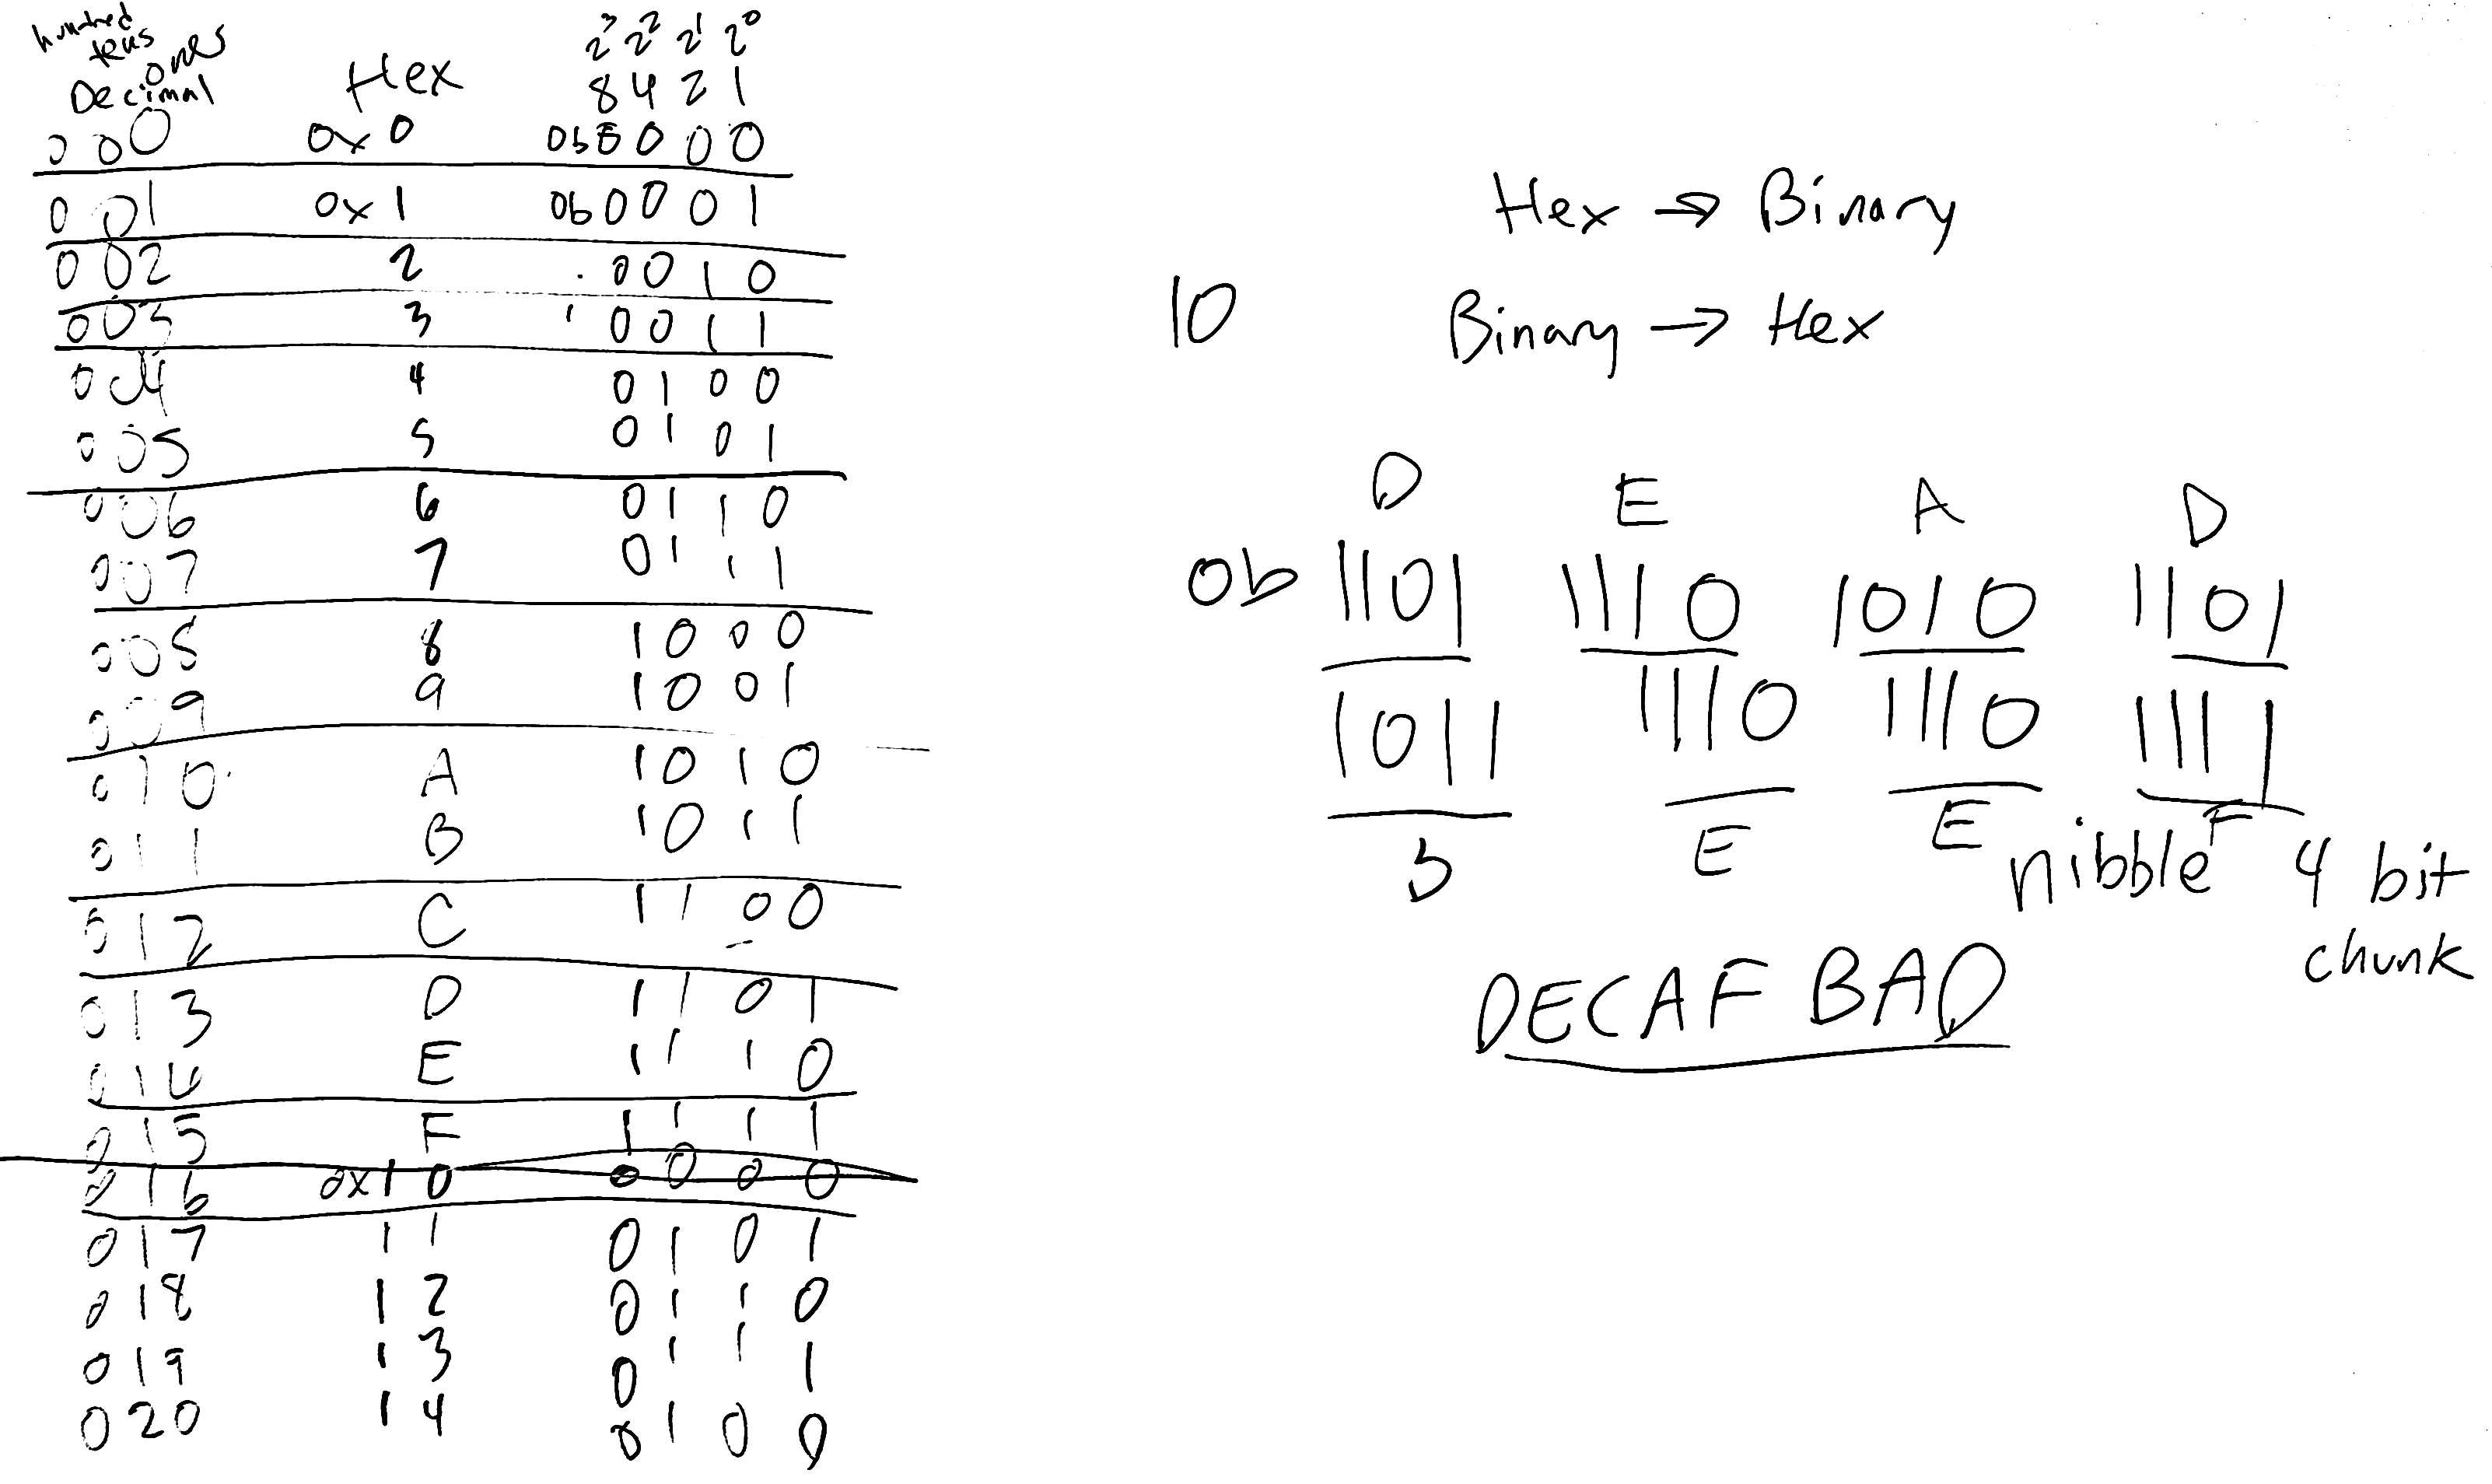 hundred
tens
ones
2³ 2² 2¹ 2⁰
Decimal Hex 8 4 2 1
0 0 0 0x0 0b 0 0 0 0
0 0 1 0x1 0b 0 0 0 1
0 0 2 2 0 0 1 0
0 0 3 3 0 0 1 1
0 0 4 4 0 1 0 0
0 0 5 5 0 1 0 1
0 0 6 6 0 1 1 0
0 0 7 7 0 1 1 1
0 0 8 8 1 0 0 0
0 0 9 9 1 0 0 1
0 1 0 A 1 0 1 0
0 1 1 B 1 0 1 1
0 1 2 C 1 1 0 0
0 1 3 D 1 1 0 1
0 1 4 E 1 1 1 0
0 1 5 F 1 1 1 1
0 1 6 0x10 0 0 0 0
0 1 7 1 1 0 1 0 1
0 1 8 1 2 0 1 1 0
0 1 9 1 3 0 1 1 1
0 2 0 1 4 0 1 0 0
Hex → Binary
10 Binary → Hex
D E A D
0b 1101 1110 1010 1101
1011 1110 1110 1111
B E E F
nibble 4 bit
chunk
DECAF BAD